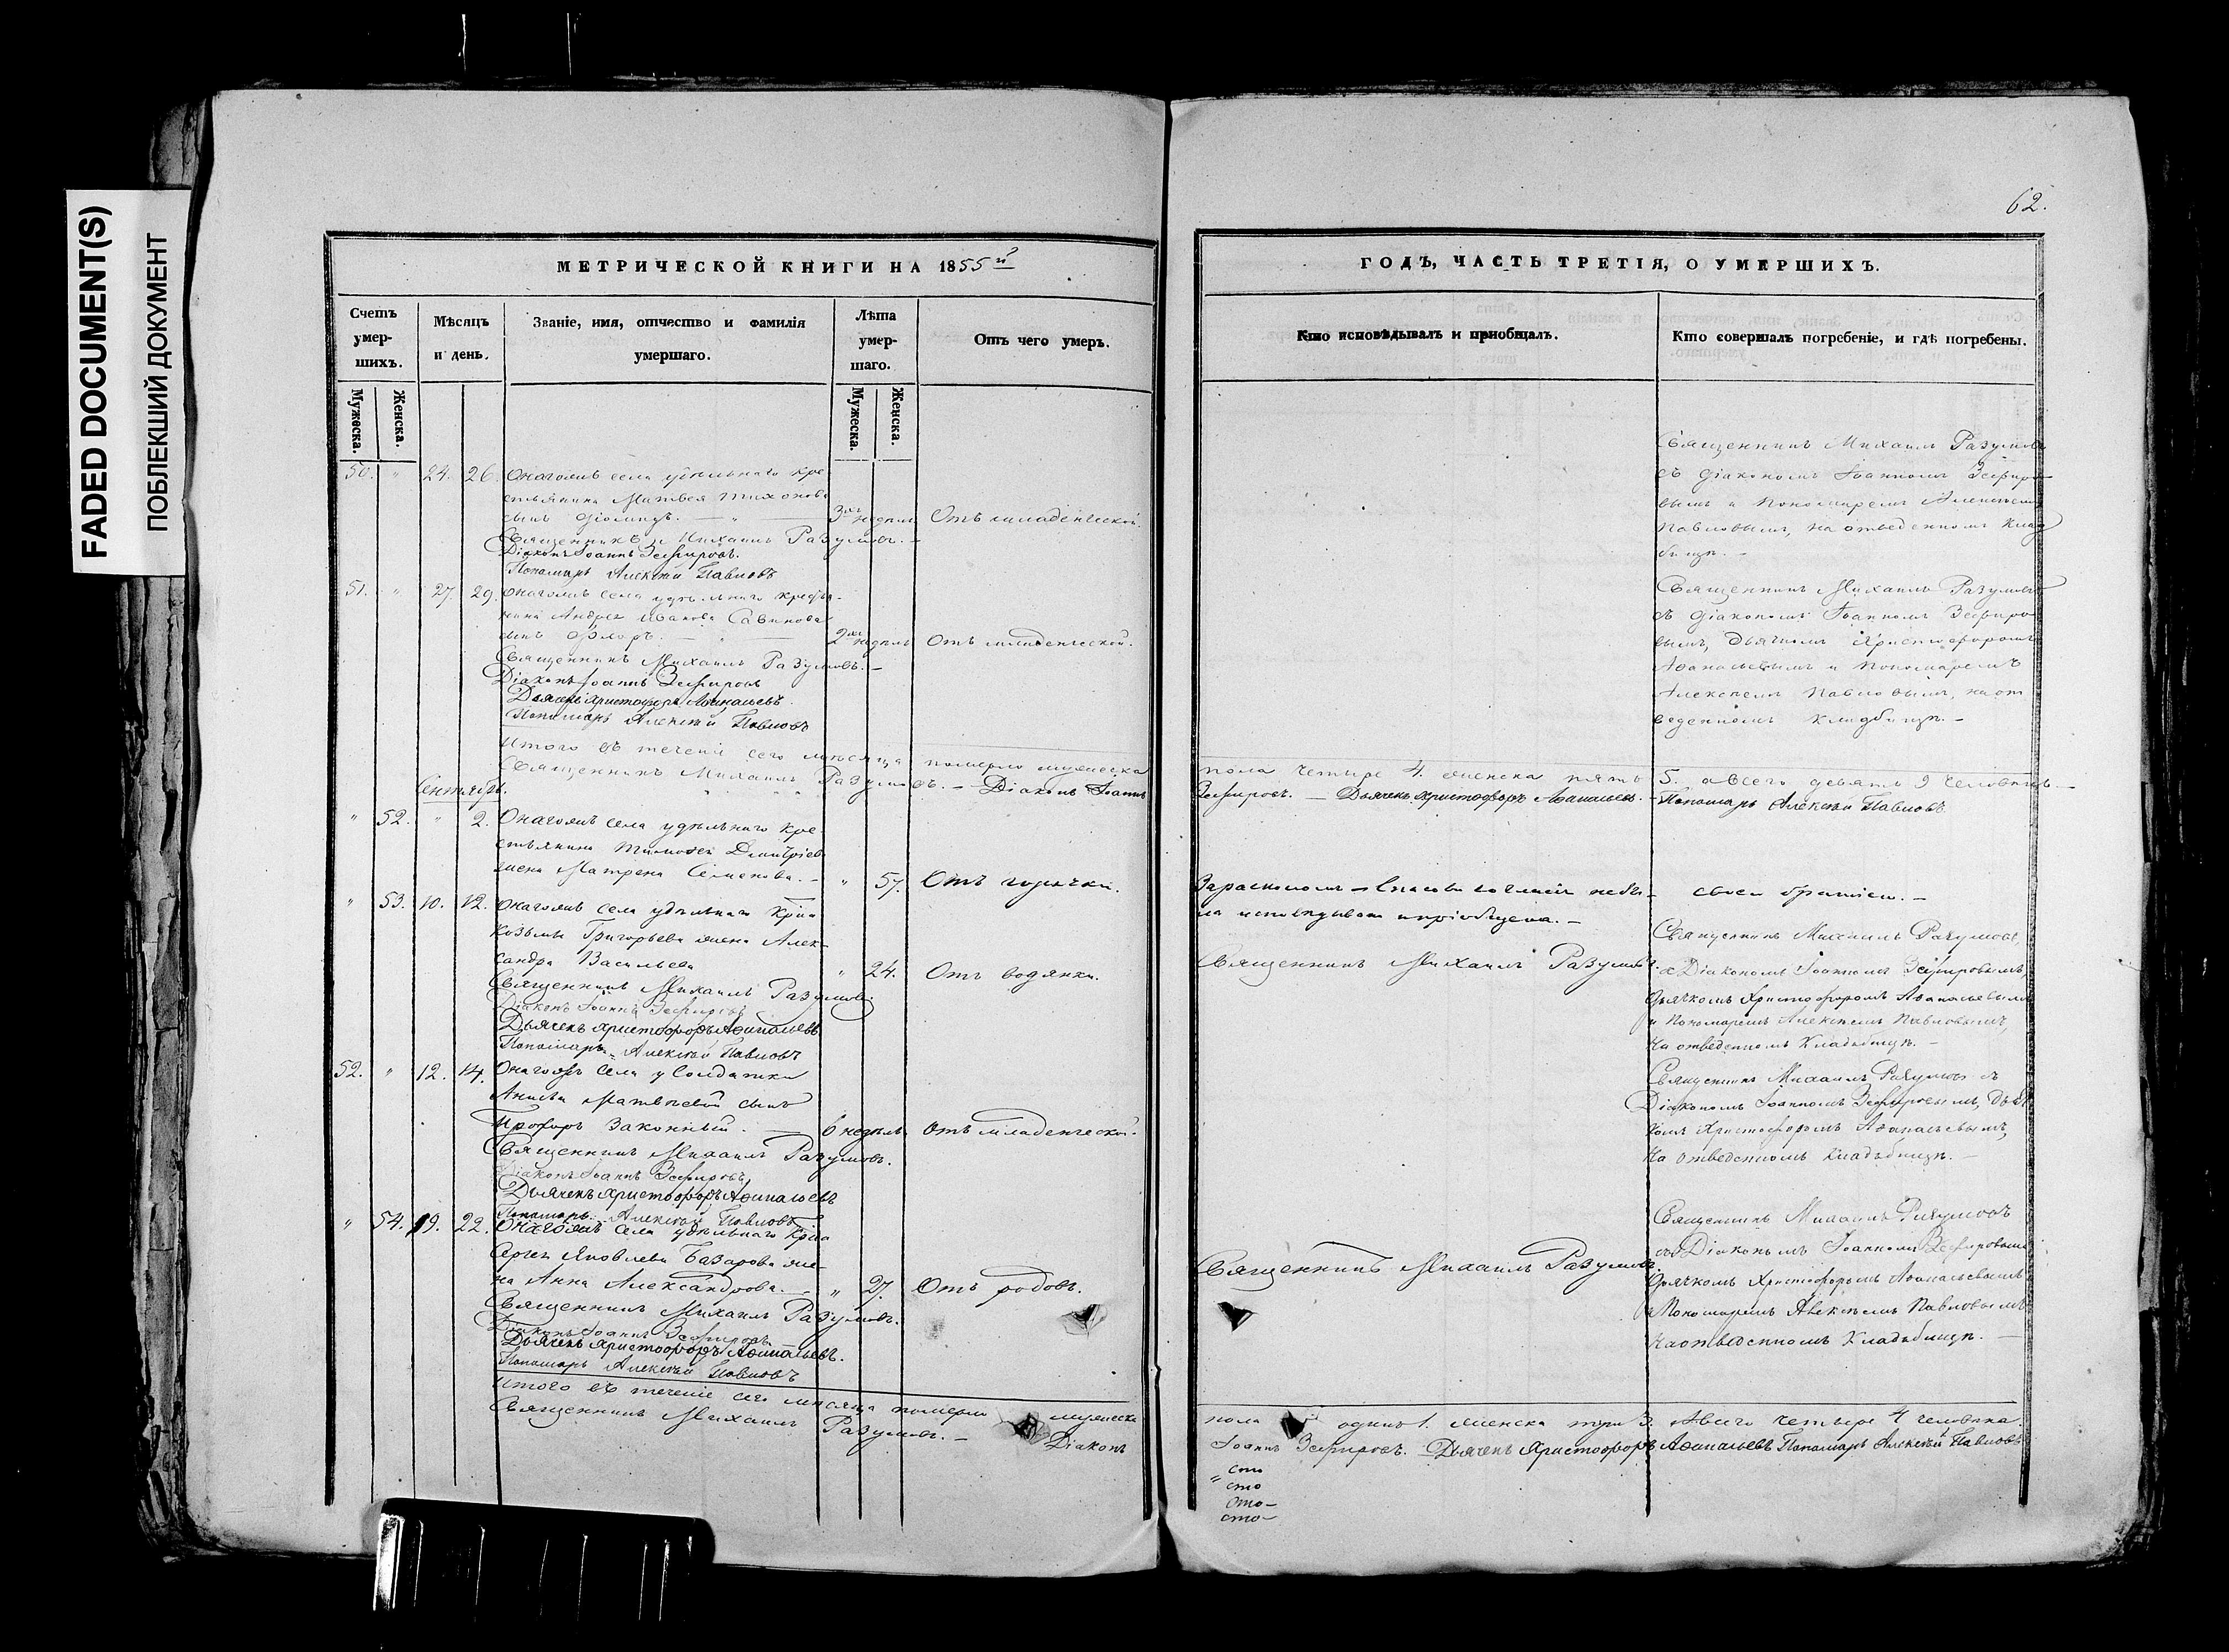 FADED DOCUMENT(S)
ПОБЛЕКШИЙ ДОКУМЕНТ
62.
МЕТРИЧЕСКОЙ КНИГИ НА 1855й
Счетъ умер-шихъ.
Мѣсяцъ и день.
Званіе, имя, отчество и фамилія умершаго.
Лѣта умер-шаго.
Отъ чего умеръ.
Мужеска.
Женска.
Мужеска.
Женска.
50. " 24. 26. Онагожъ села удѣльнаго кре
стьянина Матвея Тихонова
сынъ 3хъ недѣль Отъ младенческой.
Священникъ Михаилъ Разумовъ.
Діаконъ Іоаннъ Зефировъ.
Пономарь Алексѣй Павловъ
51. " 27. 29. Онагожъ села удѣльнаго крестья-
нина Андрея Иванова Савинова
сынъ Флоръ. 2хъ недѣль Отъ младенческой.
Священникъ Михаилъ Разумовъ.
Діаконъ Іоаннъ Зефировъ
Дьячекъ Христофоръ Аѳанасьевъ.
Пономарь Алексѣй Павловъ
Итого въ теченіи сего мѣсяца померло мужеска
Священникъ Михаилъ Разумовъ. – Діаконъ Іоаннъ
Сентябрь.
" 52. " 2. Онагожъ села удѣльнаго кре
стьянина Тимофея Димитріева
жена Матрена Семенова. " 57. Отъ горячки.
" 53. 10. 12. Онагожъ села удѣльнаго кр–на
Козьмы Григорьева жена Алек-
сандра Васильева " 24. Отъ водянки.
Священникъ Михаилъ Разумовъ.
Діаконъ Іоаннъ Зефировъ
Дьячекъ Христофоръ Аѳанасьевъ
Пономарь Алексѣй Павловъ
52. " 12. 14. Онагожъ села у Солдатки
Анисьи Матвѣевой сынъ
Прохоръ законный. 6 недѣль. Отъ младенческой.
Священникъ Михаилъ Разумовъ.
Діаконъ Іоаннъ Зефировъ
Дьячекъ Христофоръ Аѳанасьевъ
Пономарь Алексѣй Павловъ
" 54. 19. 22. Онагожъ села удѣльнаго кр–на
Сергея Яковлева Базарова же-
на Анна Александрова. " 27. Отъ родовъ.
Священникъ Михаилъ Разумовъ.
Діаконъ Іоаннъ Зефировъ
Дьячекъ Христофоръ Аѳанасьевъ.
Пономарь Алексѣй Павловъ
Итого въ теченіе сего мѣсяца померло мужеска
Священникъ Михаилъ Разумовъ. – Діаконъ
ГОДЪ, ЧАСТЬ ТРЕТІЯ, О УМЕРШИХЪ.
Кто исповѣдывалъ и пріобщалъ.
Кто совершалъ погребеніе, и гдѣ погребены.
Священникъ Михаилъ Разумовъ
съ діакономъ Іоанномъ Зефиро-
вымъ и пономаремъ Алексѣемъ
Павловымъ, на отведенномъ клад
бищѣ. –
Священникъ Михаилъ Разумовъ
съ діакономъ Іоанномъ Зефиро
вымъ, дьячкомъ Христофоромъ
Аѳанасьевымъ и пономаремъ
Алексѣемъ Павловымъ, на от
веденномъ кладбищѣ. –
пола четыре 4. женска пять 5. а всего девять 9 человѣкъ. –
Зефировъ. – Дьячекъ Христофоръ Аѳанасьевъ. – Пономарь Алексѣй Павловъ
За расколомъ – Спасова согласія небы-
ла исповѣдывана и пріобщена. –
своею братіею. –
Священникъ Михаилъ Разумовъ.
Священникъ Михаилъ Разумовъ,
съ Діакономъ Іоанномъ Зефировымъ,
дьячкомъ Христофоромъ Аѳанасьевымъ
и пономаремъ Алексѣемъ Павловымъ,
на отведенномъ кладьбищѣ. –
Священникъ Михаилъ Разумовъ съ
Діакономъ Іоанномъ Зефировымъ, дьяч
комъ Христофоромъ Аѳанасьевымъ,
на отведенномъ кладьбищѣ. –
Священникъ Михаилъ Разумовъ.
Священникъ Михаилъ Разумовъ
съ Діакономъ Іоанномъ Зефировымъ
дьячкомъ Христофоромъ Аѳанасьевымъ
и Пономаремъ Алексѣемъ Павловымъ
на отведенномъ кладьбищѣ. –
пола одинъ 1. женска три 3. а всего четыре 4 человѣка.
Іоаннъ Зефировъ. Дьячекъ Христофоръ Аѳанасьевъ Пономарь Алексѣй Павловъ
" сто
сто
сто–
сто–